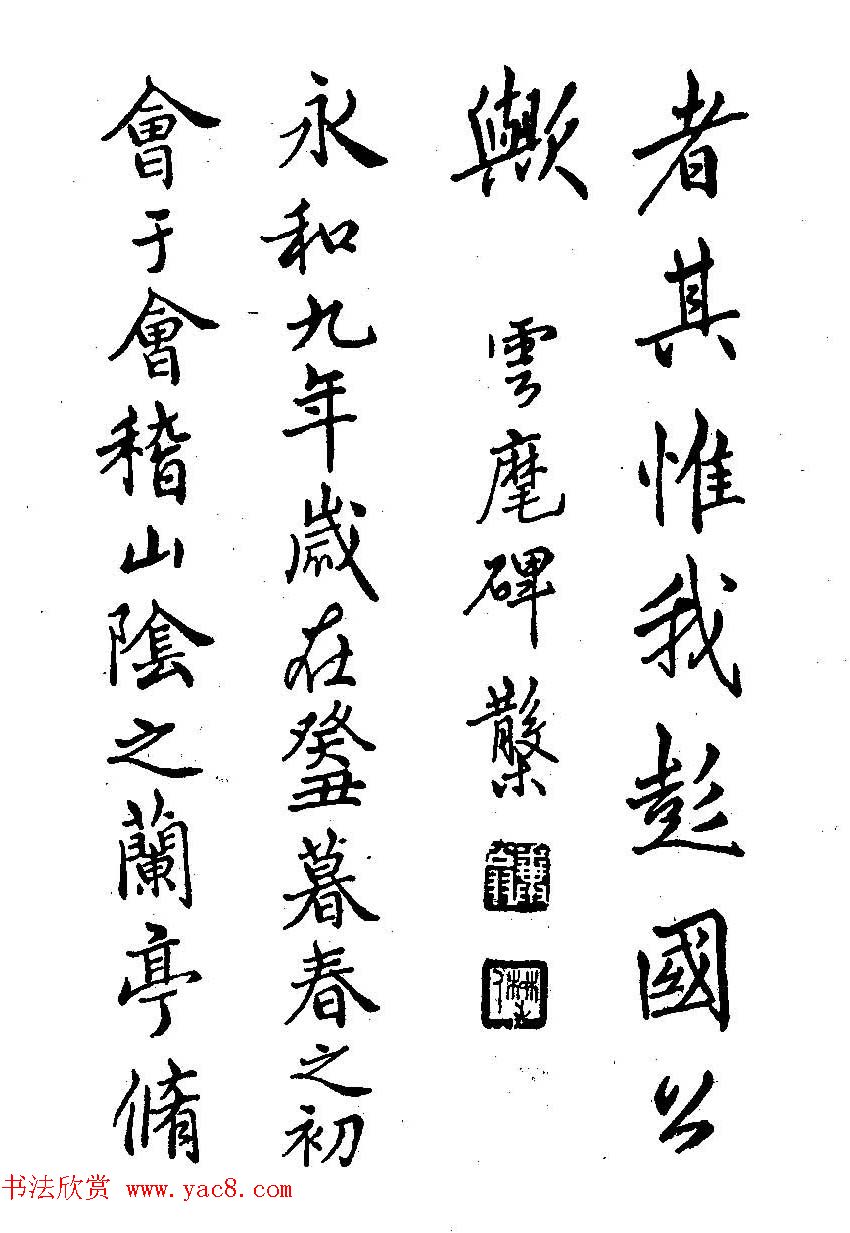 者其惟我彭國公
歟 雲麾碑 槃
永和九年歲在癸丑暮春之初
會于會稽山陰之蘭亭脩
书法欣赏 www.yac8.com